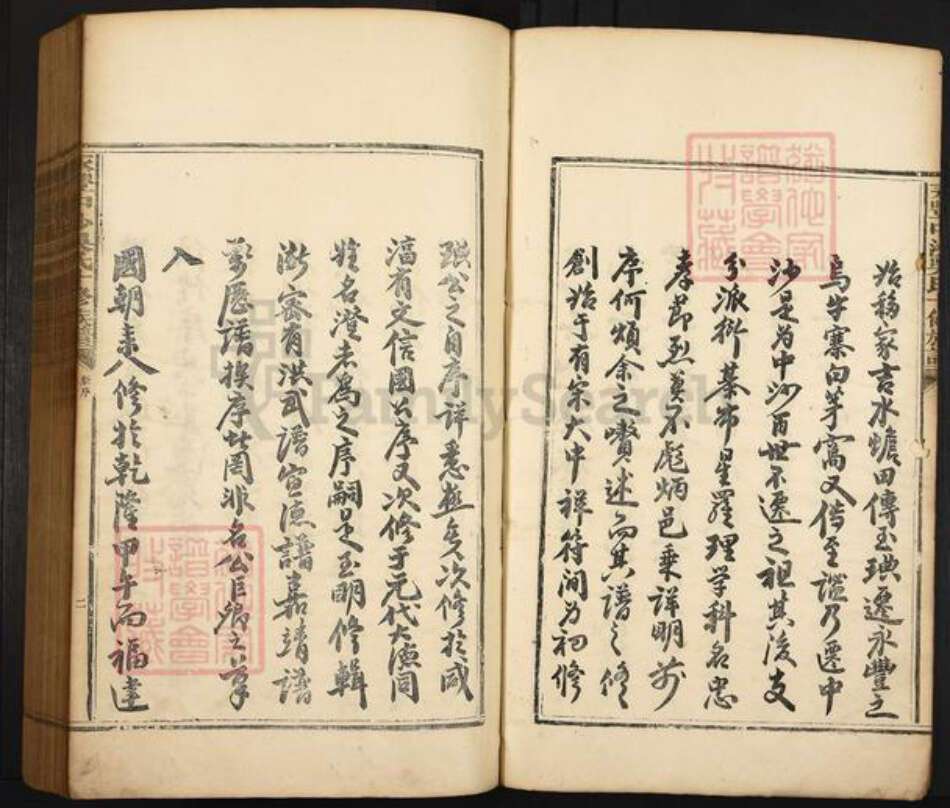 始移家吉水爐田傳玉琪遷永豐之
烏牛寨向芽窩又傳至謐乃遷中
沙是為中沙百世不遷之祖其後支
分派衍棊布星羅理学科名忠
孝節烈莫不彪炳邑乗詳明前
序何煩余之贅述而其譜之修
創始于有宋大中祥符间為初修
琪公之自序詳悉無餘次修於咸
淳有文信國公序又次修于元代大德间
姓名澄者為之序嗣是至明修輯
漸密有洪武譜宣德譜嘉靖譜
萬曆譜撰序皆罔非名公巨卿之筆
入
國朝來八修於乾隆甲午而福建
FamilySearch